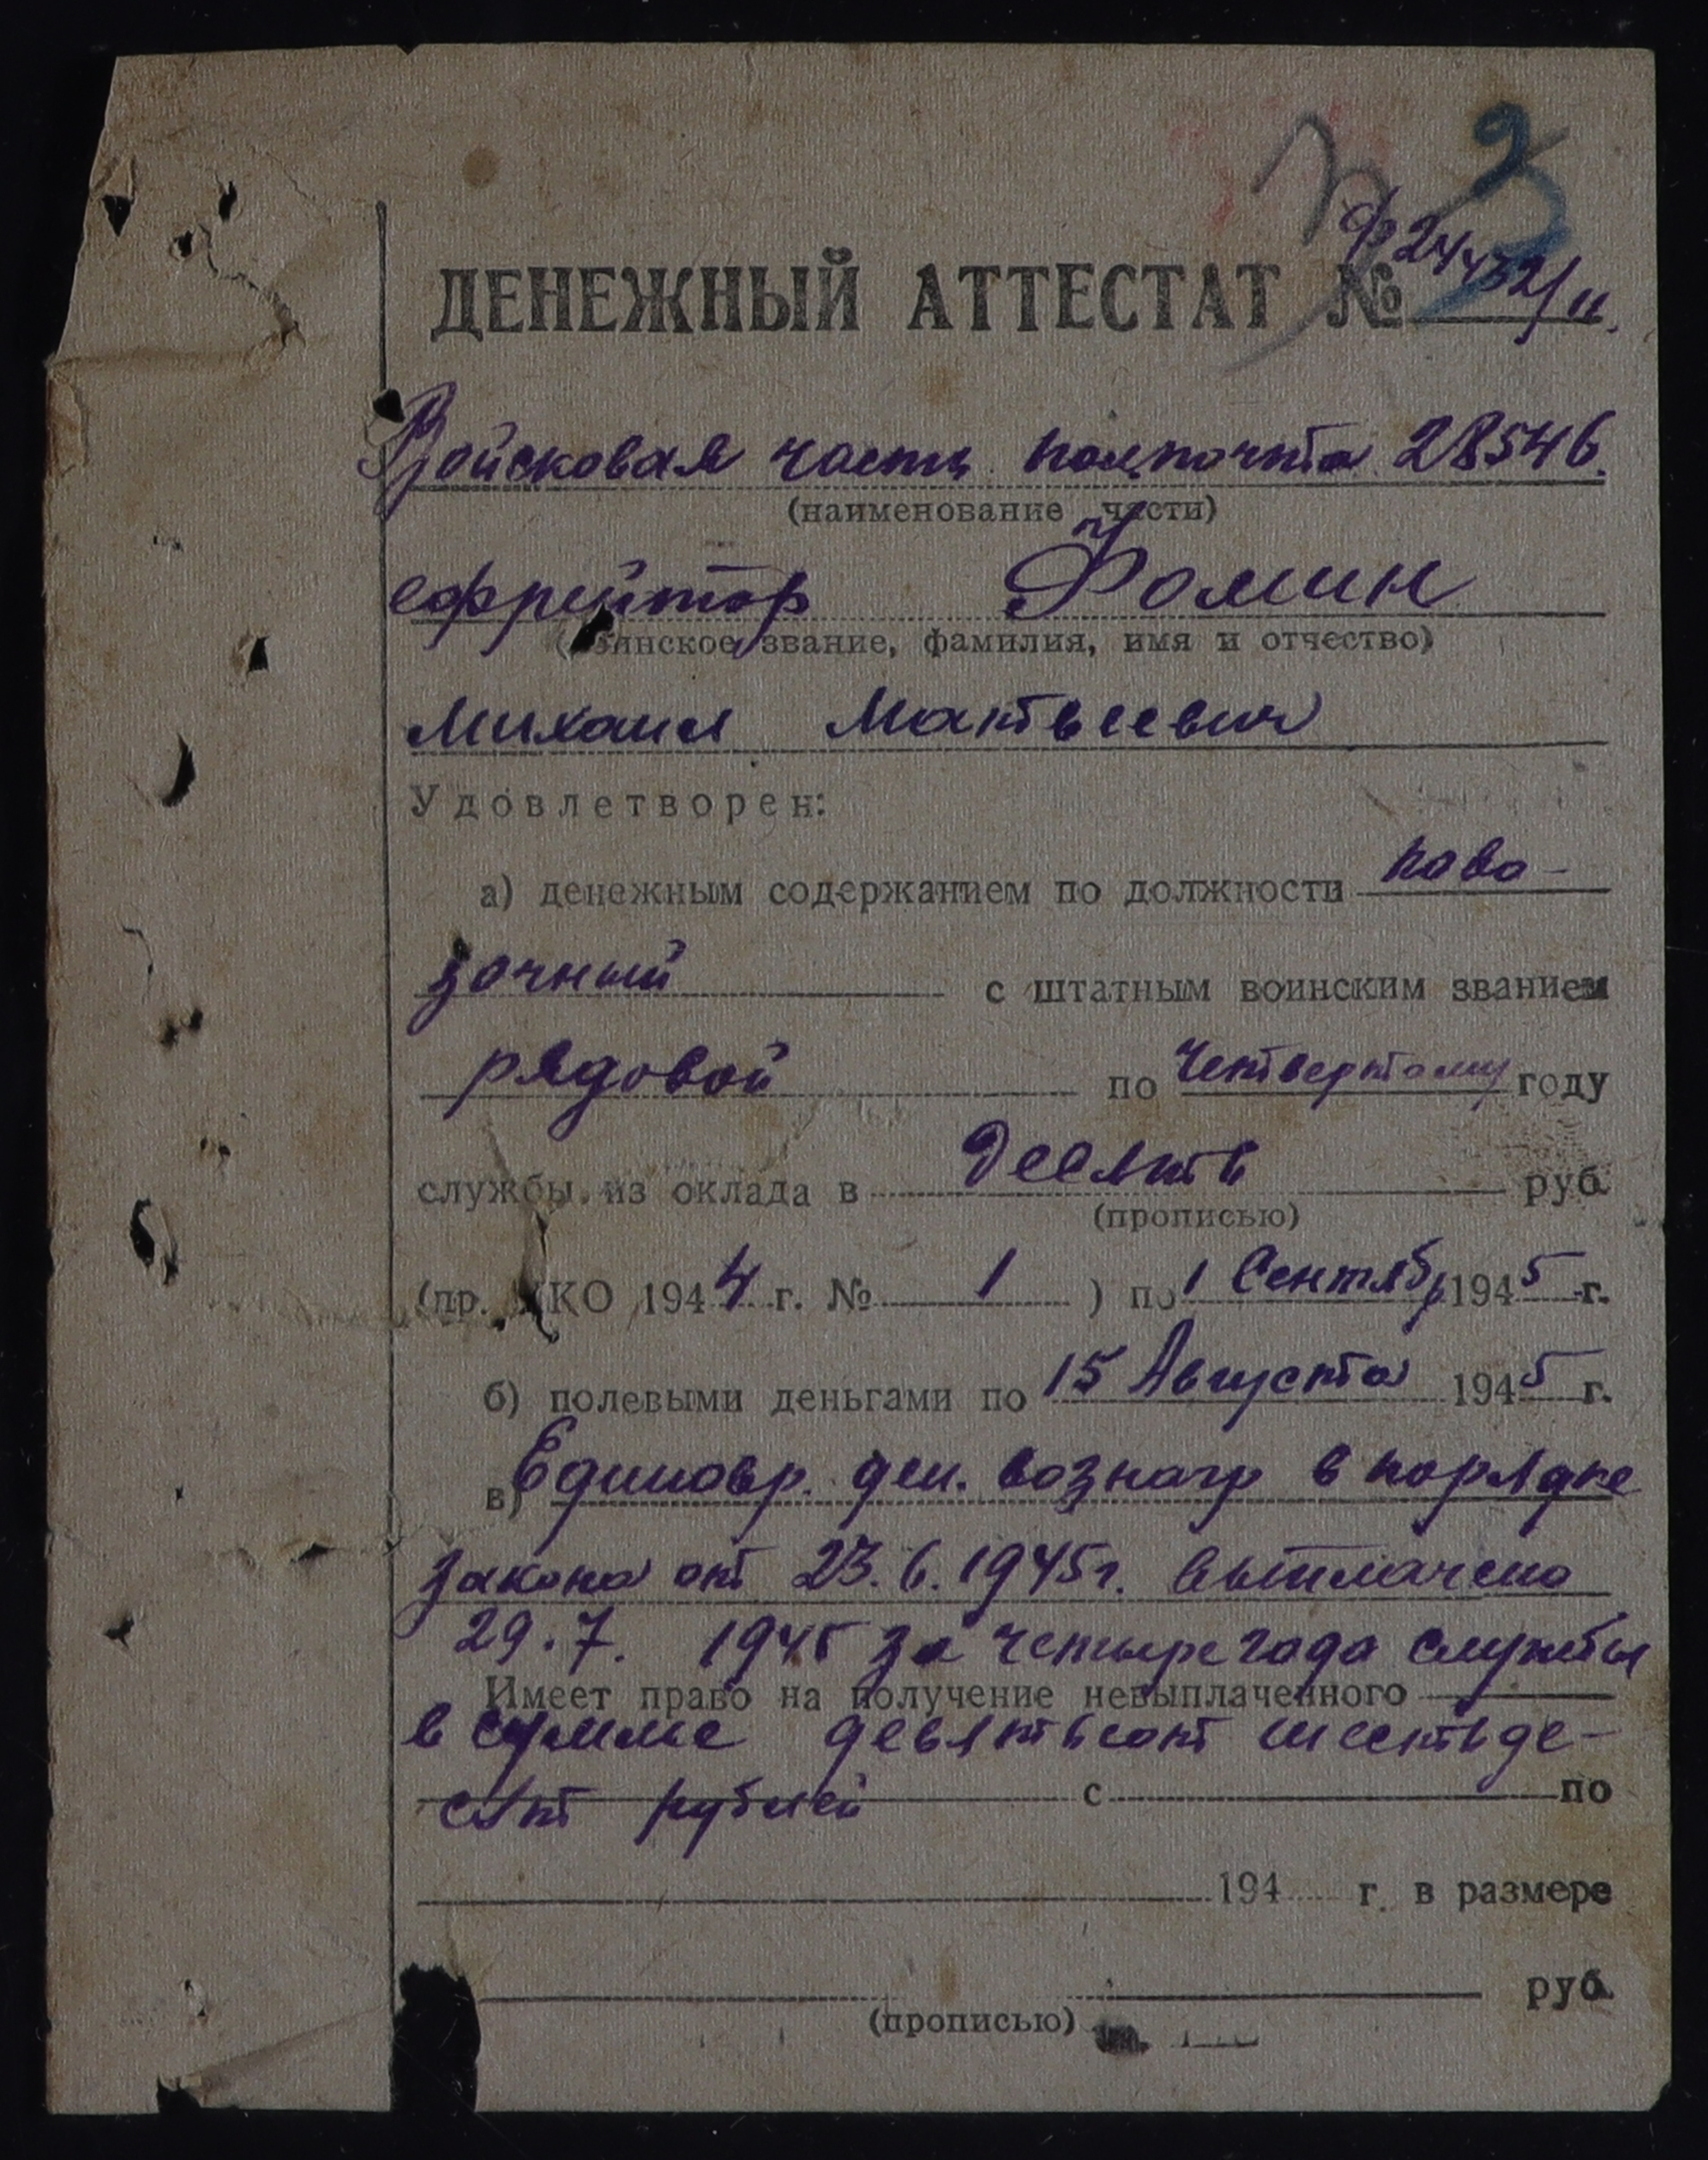 9
ф 24432/11.
ДЕНЕЖНЫЙ АТТЕСТАТ №
Войсковая часть полпочта 28546.
(наименование части)
ефрейтор Фомин
(воинское звание, фамилия, имя и отчество)
Михаил Матвеевич
Удовлетворен:
а) денежным содержанием по должности пово-
зочный с штатным воинским званием
рядовой по четвертому году
службы из оклада в десять руб.
(прописью)
(пр. НКО 1944 г. № 1 ) по 1 Сентябр 1945 г.
б) полевыми деньгами по 15 Августа 1945 г.
в) Единовр. ден. вознагр в порядке
закона от 23.6.1945г. выплачено
29.7. 1945 за четыре года службы
Имеет право на получение невыплаченного
в сумме девятьсот шестьде-
сят рублей с по
194 г. в размере
руб.
(прописью)